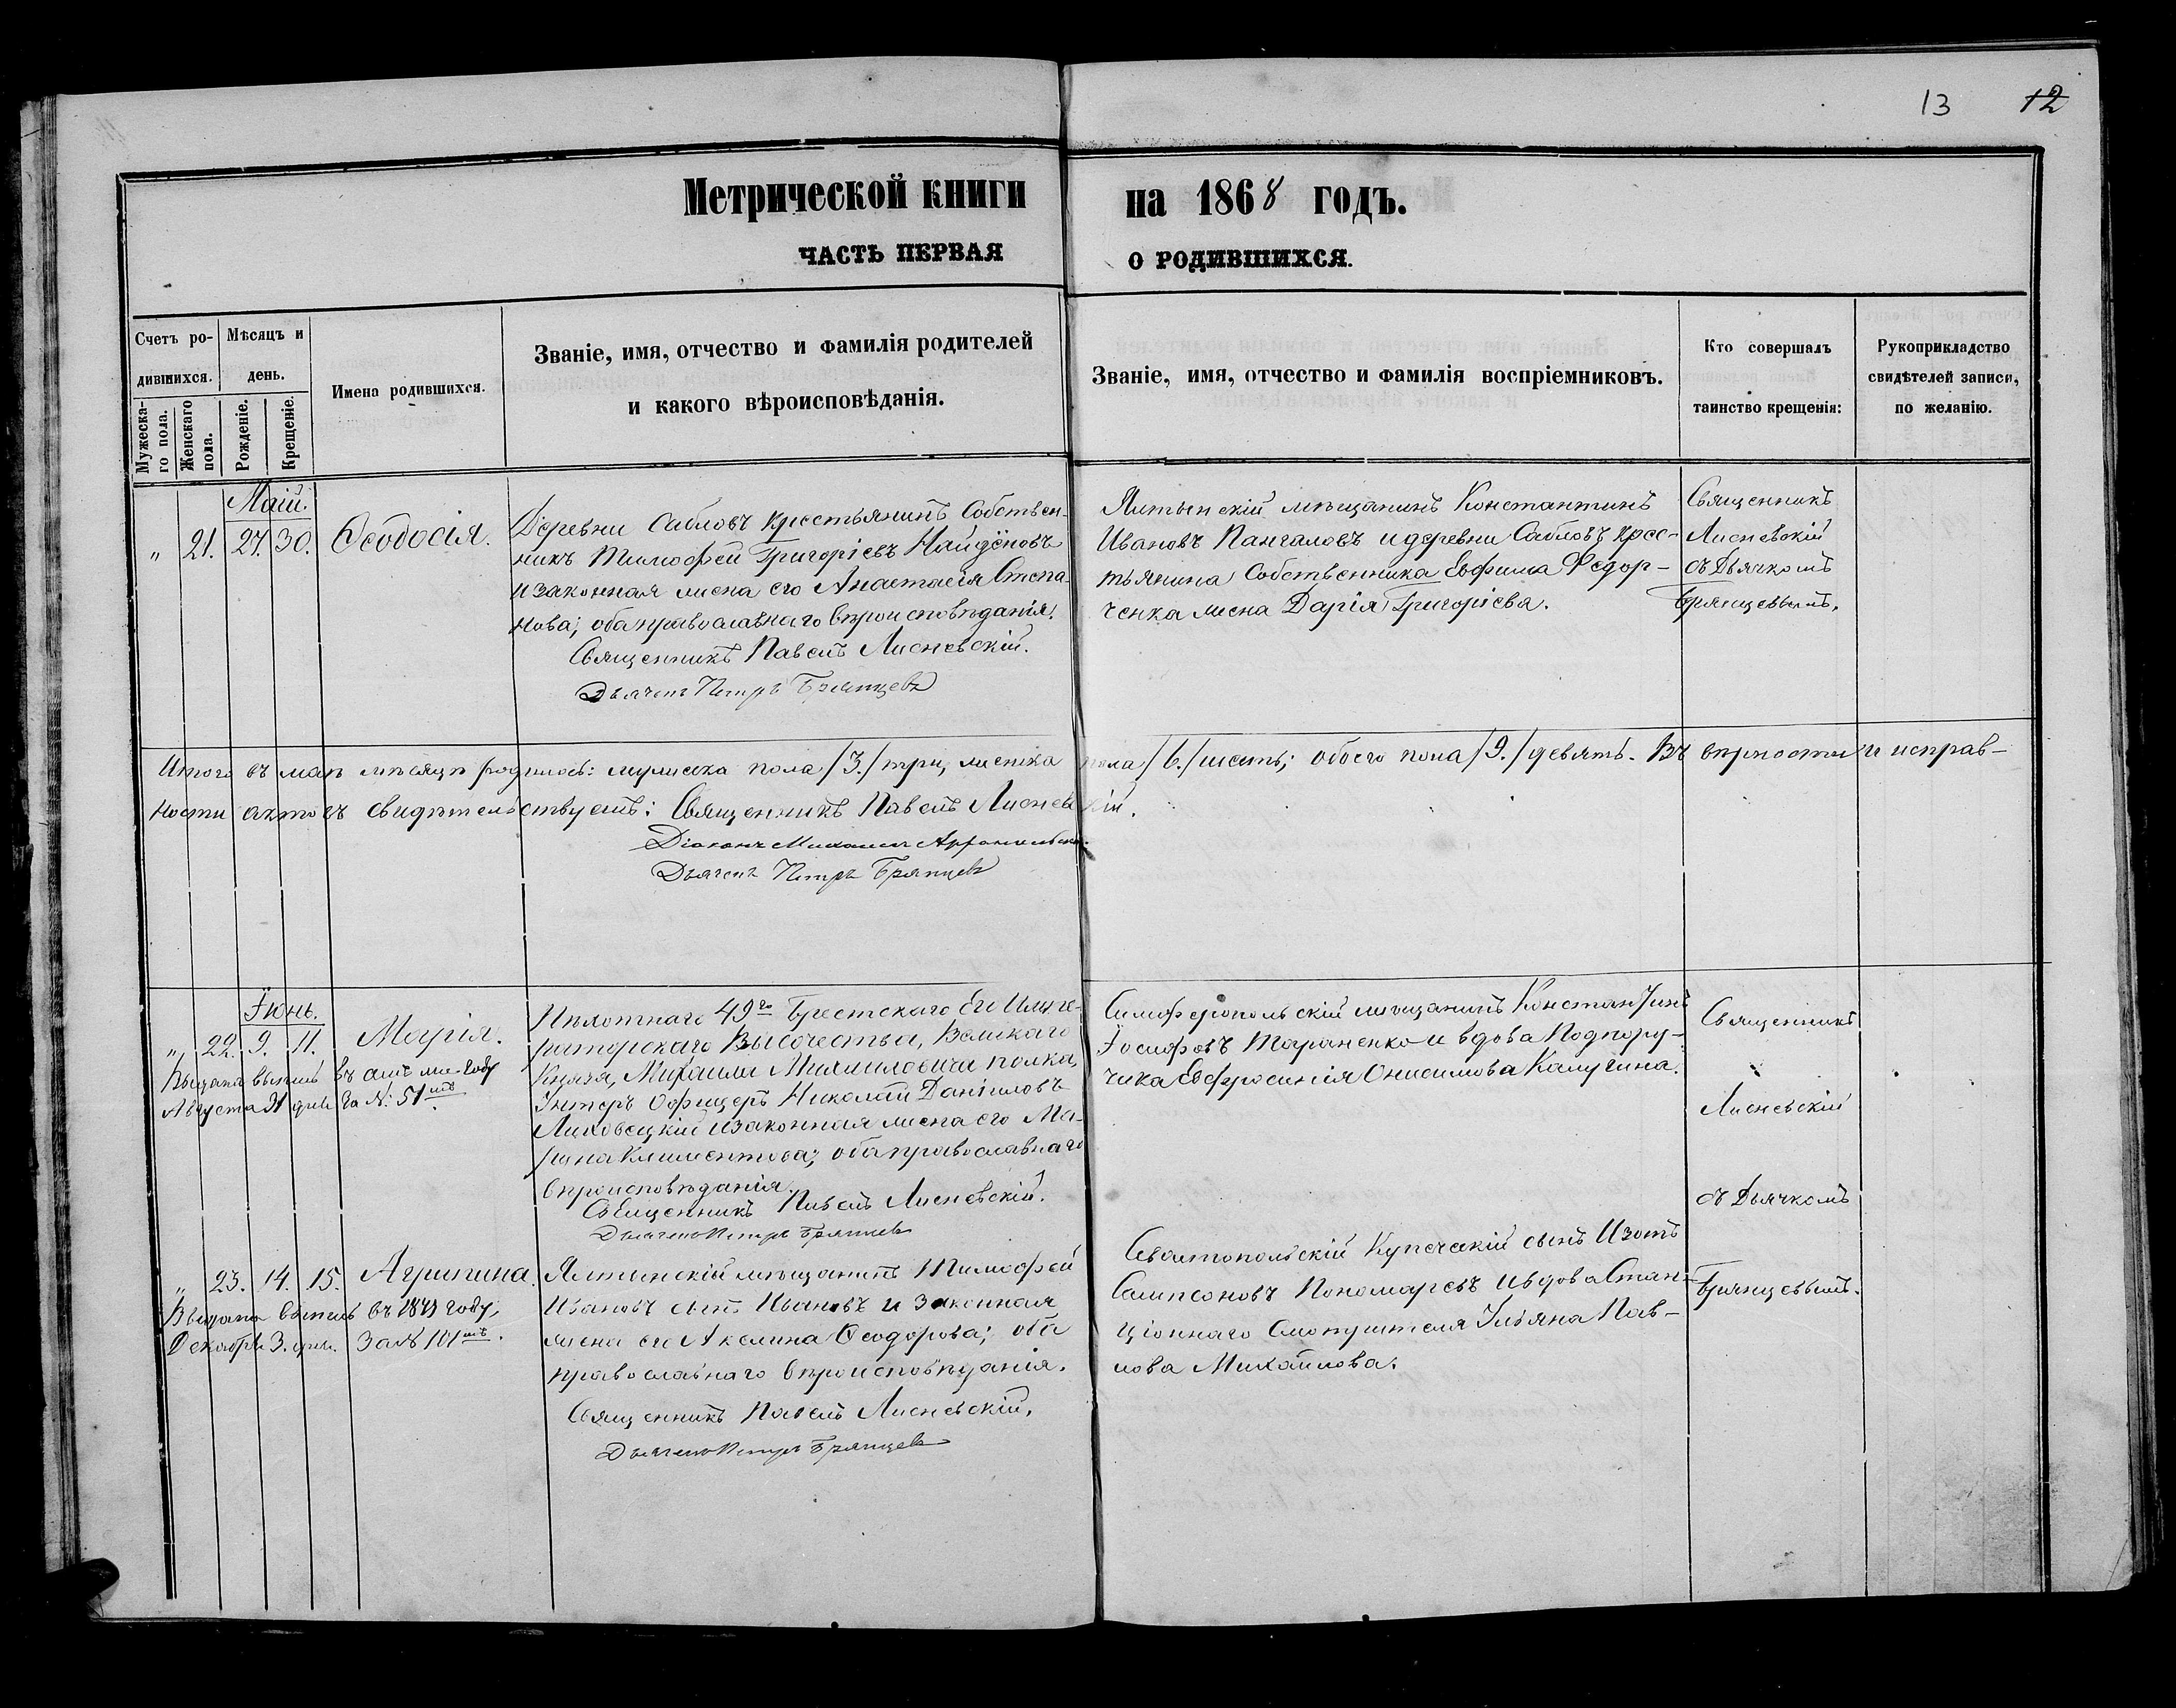 13 12
Метрической книги на 1868 годъ.
ЧАСТЬ ПЕРВАЯ О РОДИВШИХСЯ.
Счетъ ро-
дившихся.
Мужеска-
го пола.
Женскаго
пола.
Мѣсяцъ и
день.
Рожденіе.
Крещеніе.
Имена родившихся.
Званіе, имя, отчество и фамилія родителей
и какого вѣроисповѣданія.
Званіе, имя, отчество и фамилія воспріемниковъ.
Кто совершалъ
таинство крещенія:
Рукоприкладство
свидѣтелей записи,
по желанію.
Маій.
„ 21. 27. 30. Ѳеодосія.
Деревни Сабловъ крестьянинъ Собствен-
никъ Тимофей Григоріевъ Найдёновъ
и законная жена его Анастасія Степа-
нова; оба православнаго вѣроисповѣданія.
Священникъ Павелъ Лисневскій.
Дьячекъ Петръ Брянцевъ
Ялтинскій мѣщанинъ Константинъ
Ивановъ Пангаловъ и деревни Сабловъ крес-
тьянина Собственника Евфима Федор-
ченка жена Дарія Григоріева.
Священникъ
Лисневскій
съ Дьячкомъ
Брянцевымъ.
Итого въ маѣ мѣсяцѣ родилось: мужеска пола /3./ три, женска пола /6./ шесть; обоего пола /9./ девять. Въ вѣрности и исправ-
ности актовъ свидѣтельствуемъ: Священникъ Павелъ Лисневскій.
Діаконъ Михаилъ
Дьячекъ Петръ Брянцевъ
Іюнь.
„ 22. 9. 11. Марія.
Августа 31 дня за №: 51мъ
Пѣхотнаго 49го Брестскаго Его Импе-
раторскаго Высочества, Великаго
Князя, Михаила Михаиловича полка,
Унтеръ Офицеръ Николай Даніиловъ
Лиховецкій и законная жена его Ма-
рина Климентова; оба православнаго
вѣроисповѣданія.
Священникъ Павелъ Лисневскій.
Дьячекъ Петръ Брянцевъ
Симферопольскій мѣщанинъ Константинъ
Іосифовъ Тараненко и вдова Подпору-
чика Евфросинія Онисимова Калугина.
Священникъ
Лисневскій
съ Дьячкомъ
Брянцевымъ.
„ 23. 14. 15. Агрипина.
Декабря 3. дня. За № 101мъ.
Ялтинскій мѣщанинъ Тимофей
Ивановъ сынъ Ивановъ и Законная
жена его Акелина Ѳеодорова; оба
православнаго вѣроисповѣданія.
Священникъ Павелъ Лисневскій.
Дьячекъ Петръ Брянцевъ
Севастопольскій Купеческій сынъ Изотъ
Сампсоновъ Пономаревъ и вдова Стан-
ціоннаго Смотрителя Ульяна Пав-
лова Михайлова.